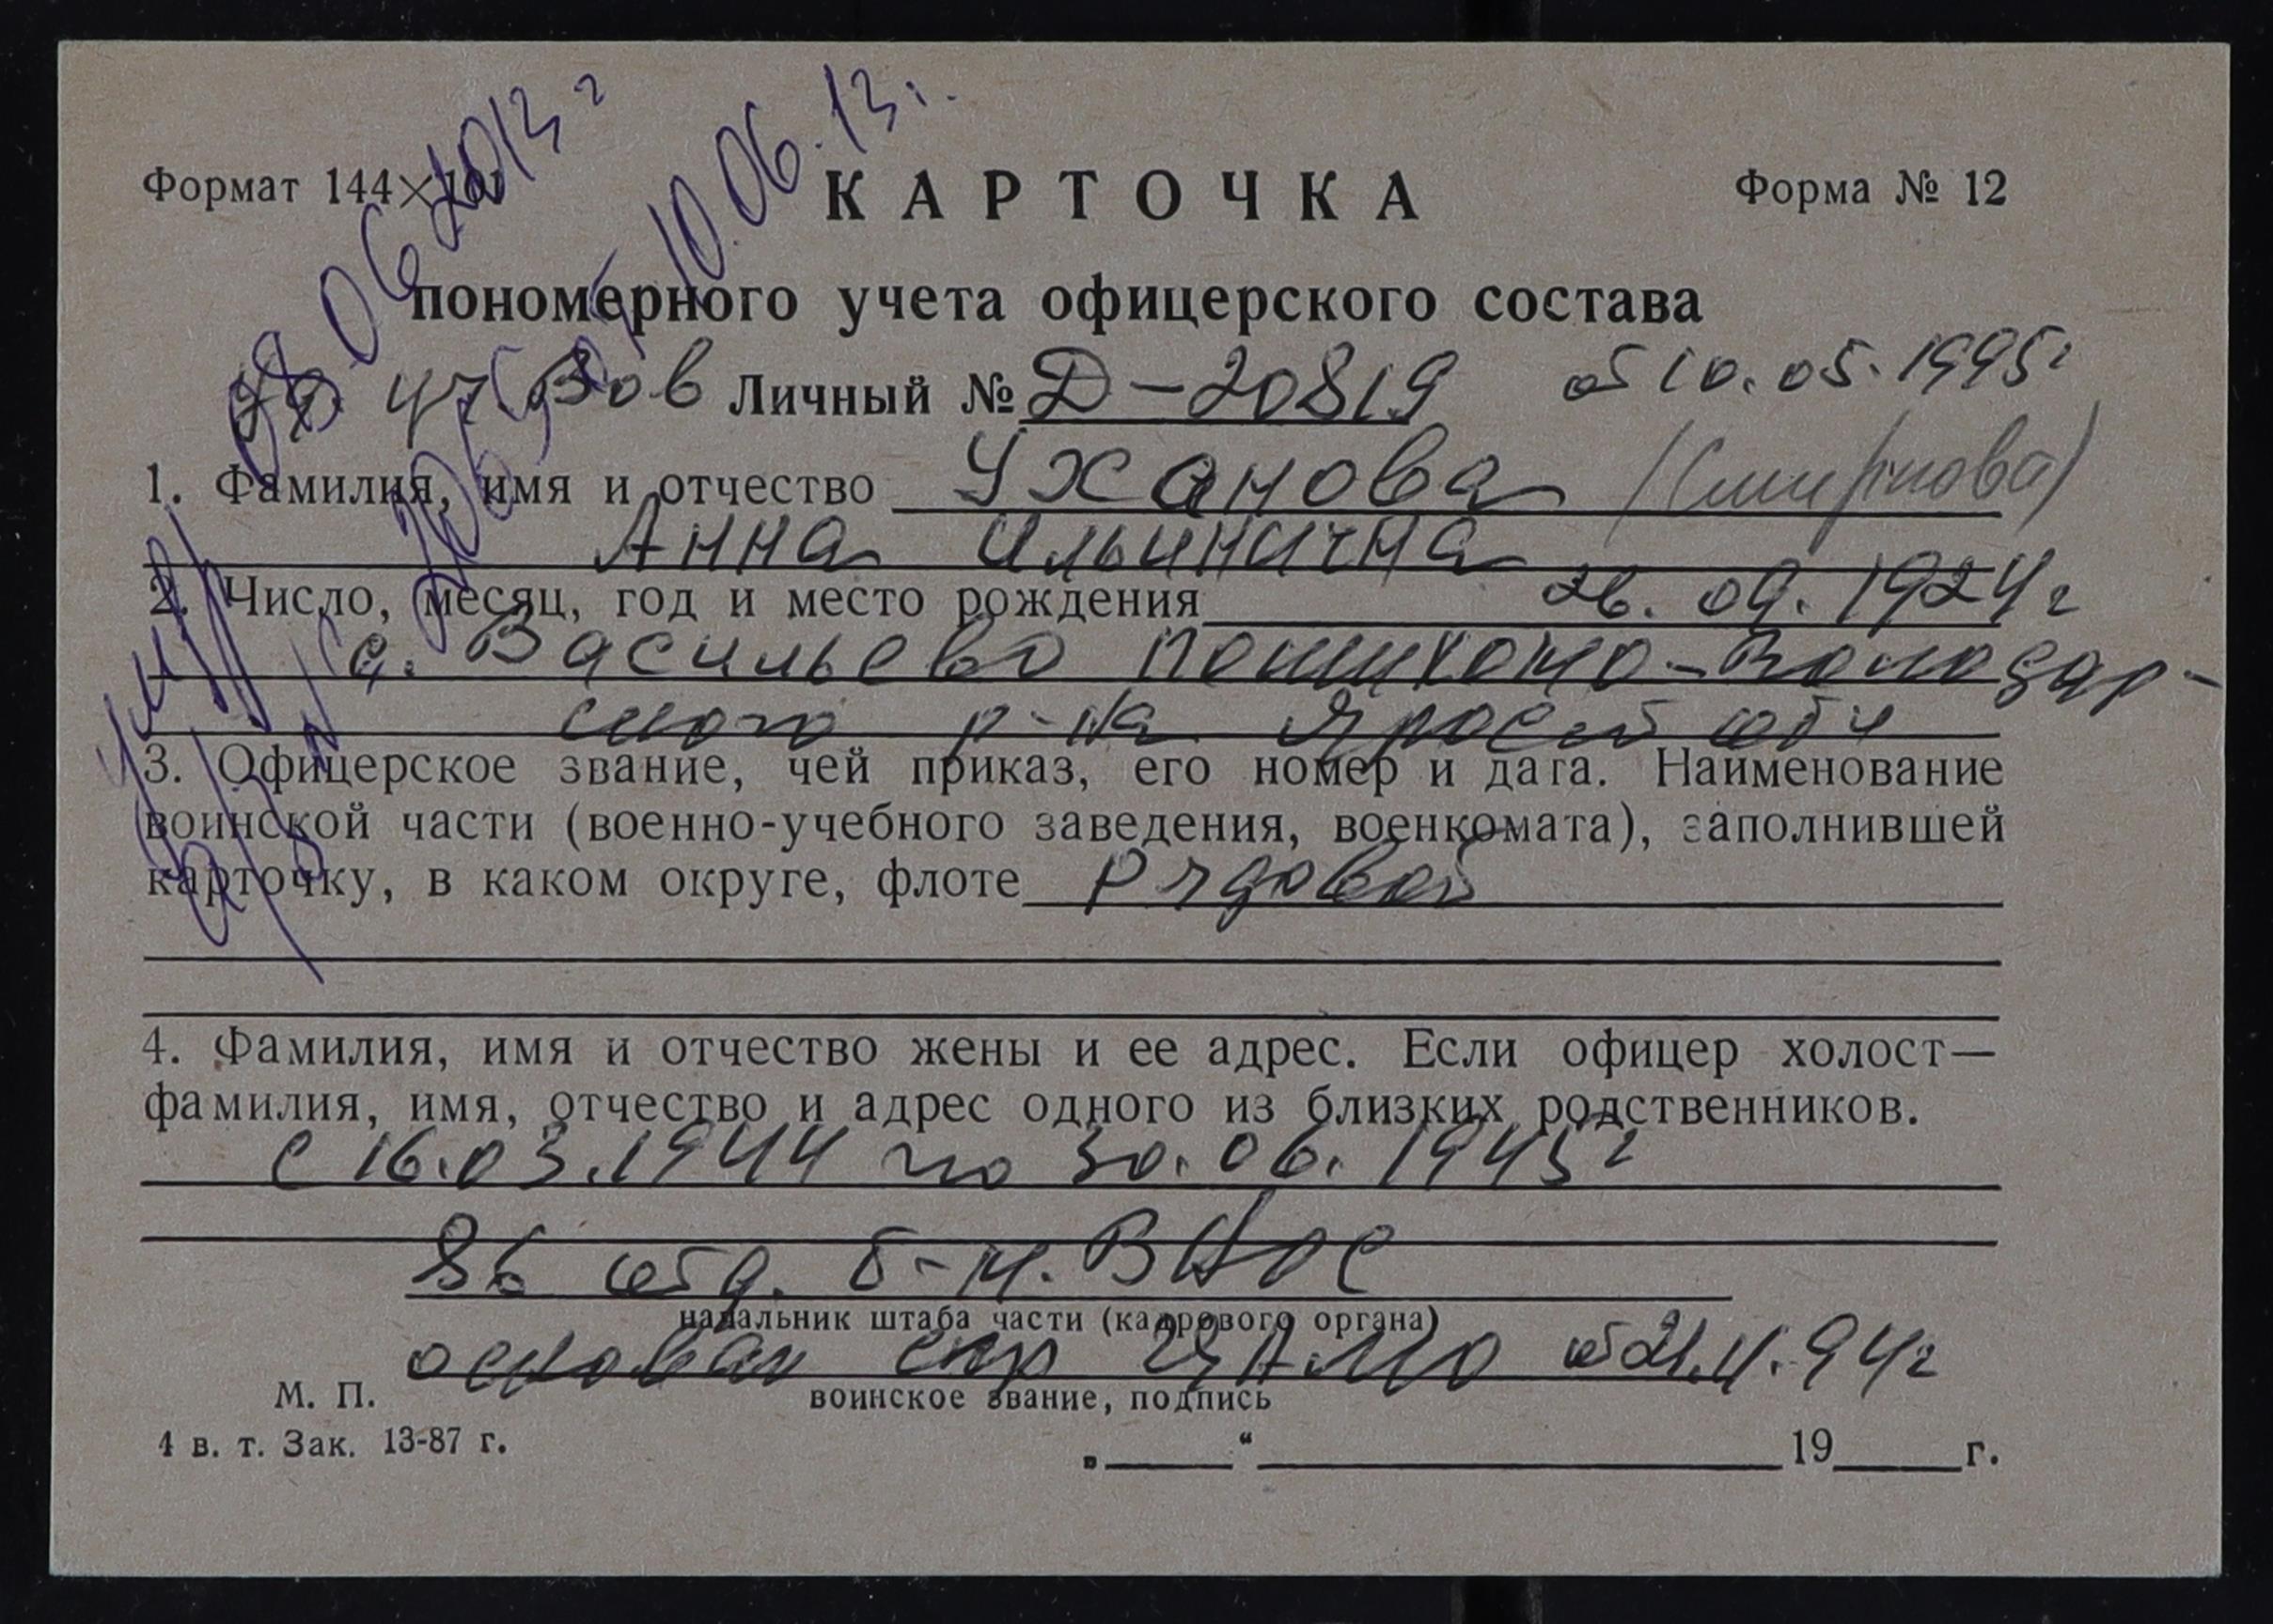 Формат 144×101
КАРТОЧКА
Форма № 12
пономерного учета офицерского состава
уч. ВОВ Личный № Д-20819 от 10.05.1995г
1. Фамилия, имя и отчество Уханова (Смирнова)
Анна Ильинична
2. Число, месяц, год и место рождения 26.09.1924г
д. Васильево Пошехоно-Володар-
ского р-на Яросл обл
3. Офицерское звание, чей приказ, его номер и дата. Наименование
воинской части (военно-учебного заведения, военкомата), заполнившей
карточку, в каком округе, флоте рядовой
4. Фамилия, имя и отчество жены и ее адрес. Если офицер холост—
фамилия, имя, отчество и адрес одного из близких родственников.
с 16.03.1944 по 30.06.1945г
86 отд. б-н. ВНОС
начальник штаба части (кадрового органа)
основан спр ЦАМО от 21.11.94г
М. П. воинское звание, подпись
4 в. т. Зак. 13-87 г.
„ “ 19 г.
умерла 08.06.2013г
10.06.13г.